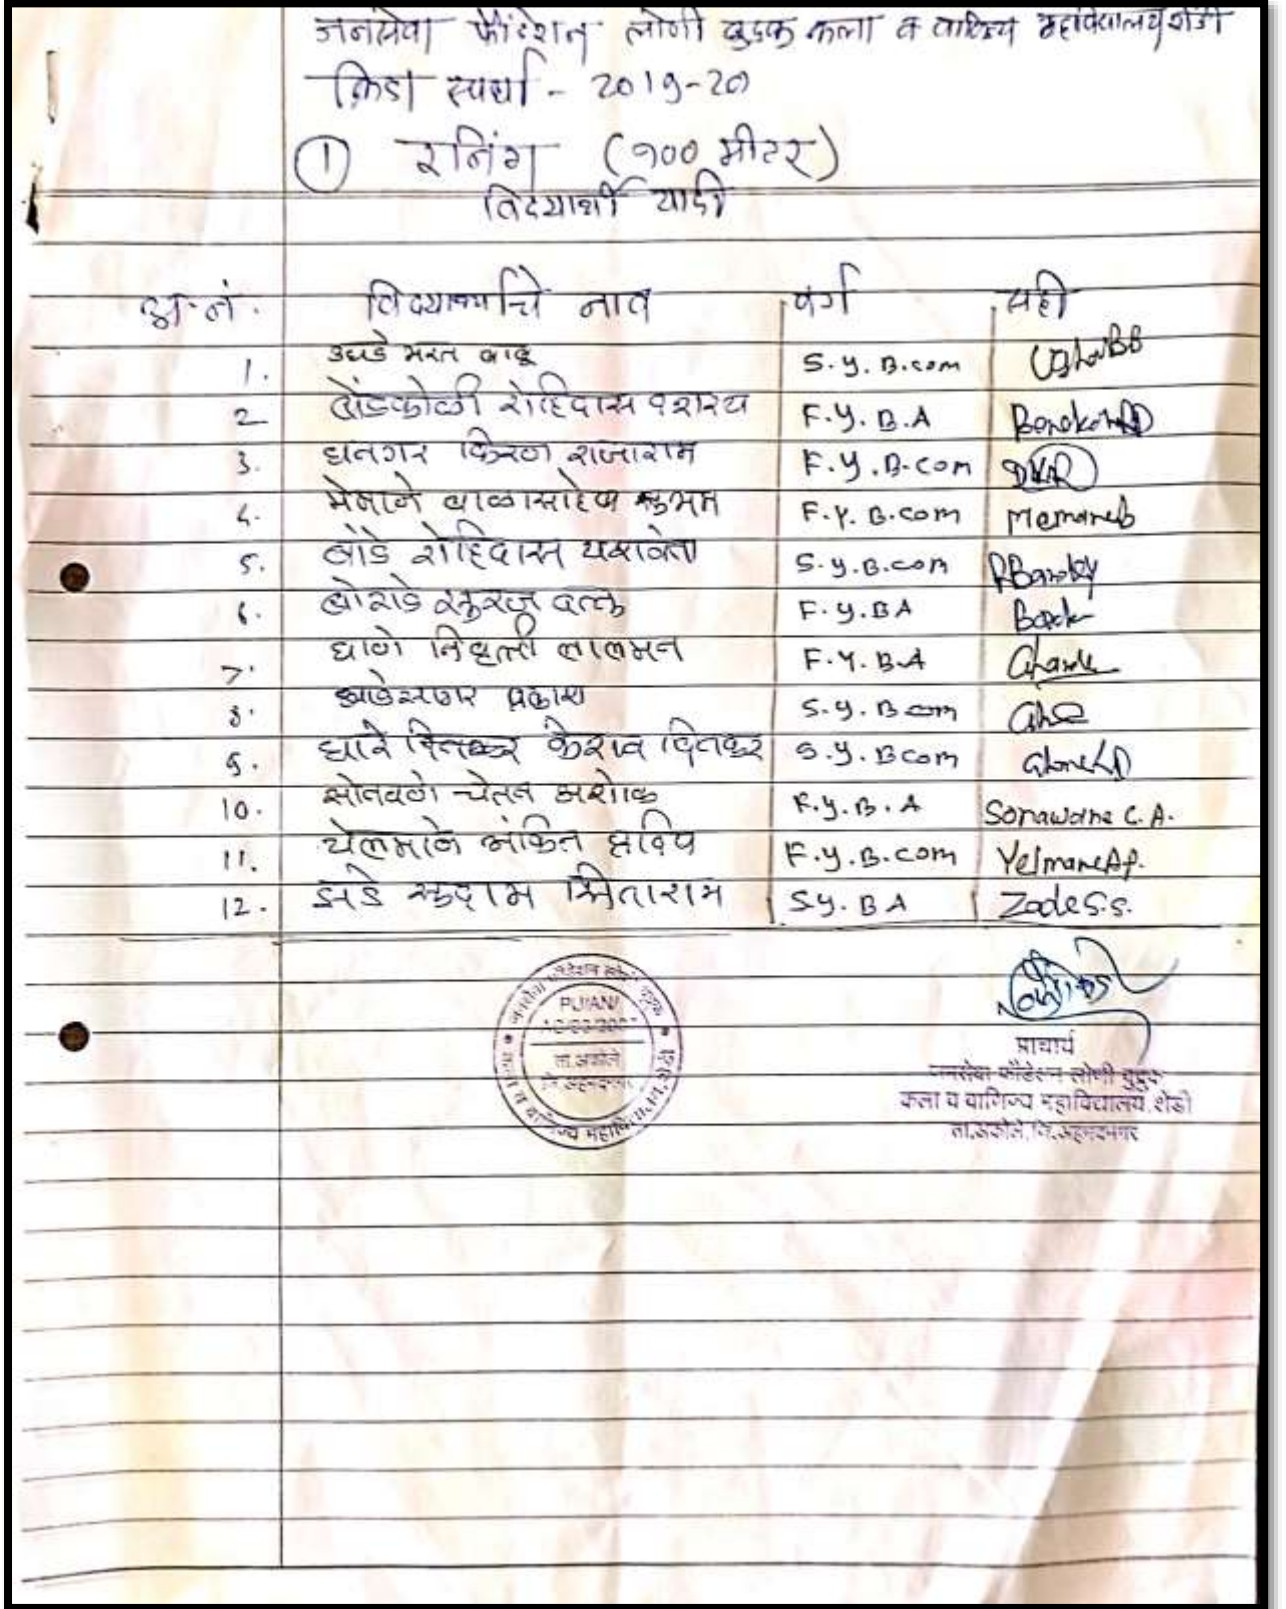 जनसेवा फौंडेशन लोणी बुद्रुक कला व वाणिज्य महाविद्यालय शेंडी
क्रिडा स्पर्धा - 2019-20
1 रनिंग (१०० मीटर)
विद्यार्थी यादी
अ.नं. विद्यार्थ्याचे नाव वर्ग सही
1. उघडे भरत बाबू S.Y.B.com
2 बोंडकोळी रोहिदास दशरथ F.Y.B.A
3. धनगर किरण राजाराम F.Y.B.com DKR
4. मेमाने बाळासाहेब F.Y.B.com MemaneB
5. बांडे रोहिदास यशवंत S.Y.B.com
6. बोराडे दत्तू F.Y.BA
7. घाणे निवृत्ती लालमन F.Y.B.A
8. प्रकाश S.Y.B com
9. घारे केशव दिनकर S.Y.Bcom
10. सोनवणे चेतन अशोक F.Y.B.A Sonawane C.A.
11. येलमाने अंकित F.Y.B.com Yelmane A.P.
12. झडे सुदाम सिताराम S.Y.BA Zade S.S.
जनसेवा फौंडेशन लोणी बुद्रुक
PU/AN/
ता.अकोले
जि.अहमदनगर
कला व वाणिज्य महाविद्यालय, शेंडी
प्राचार्य
जनसेवा फौंडेशन लोणी बुद्रुक
कला व वाणिज्य महाविद्यालय, शेंडी
ता.अकोले, जि.अहमदनगर